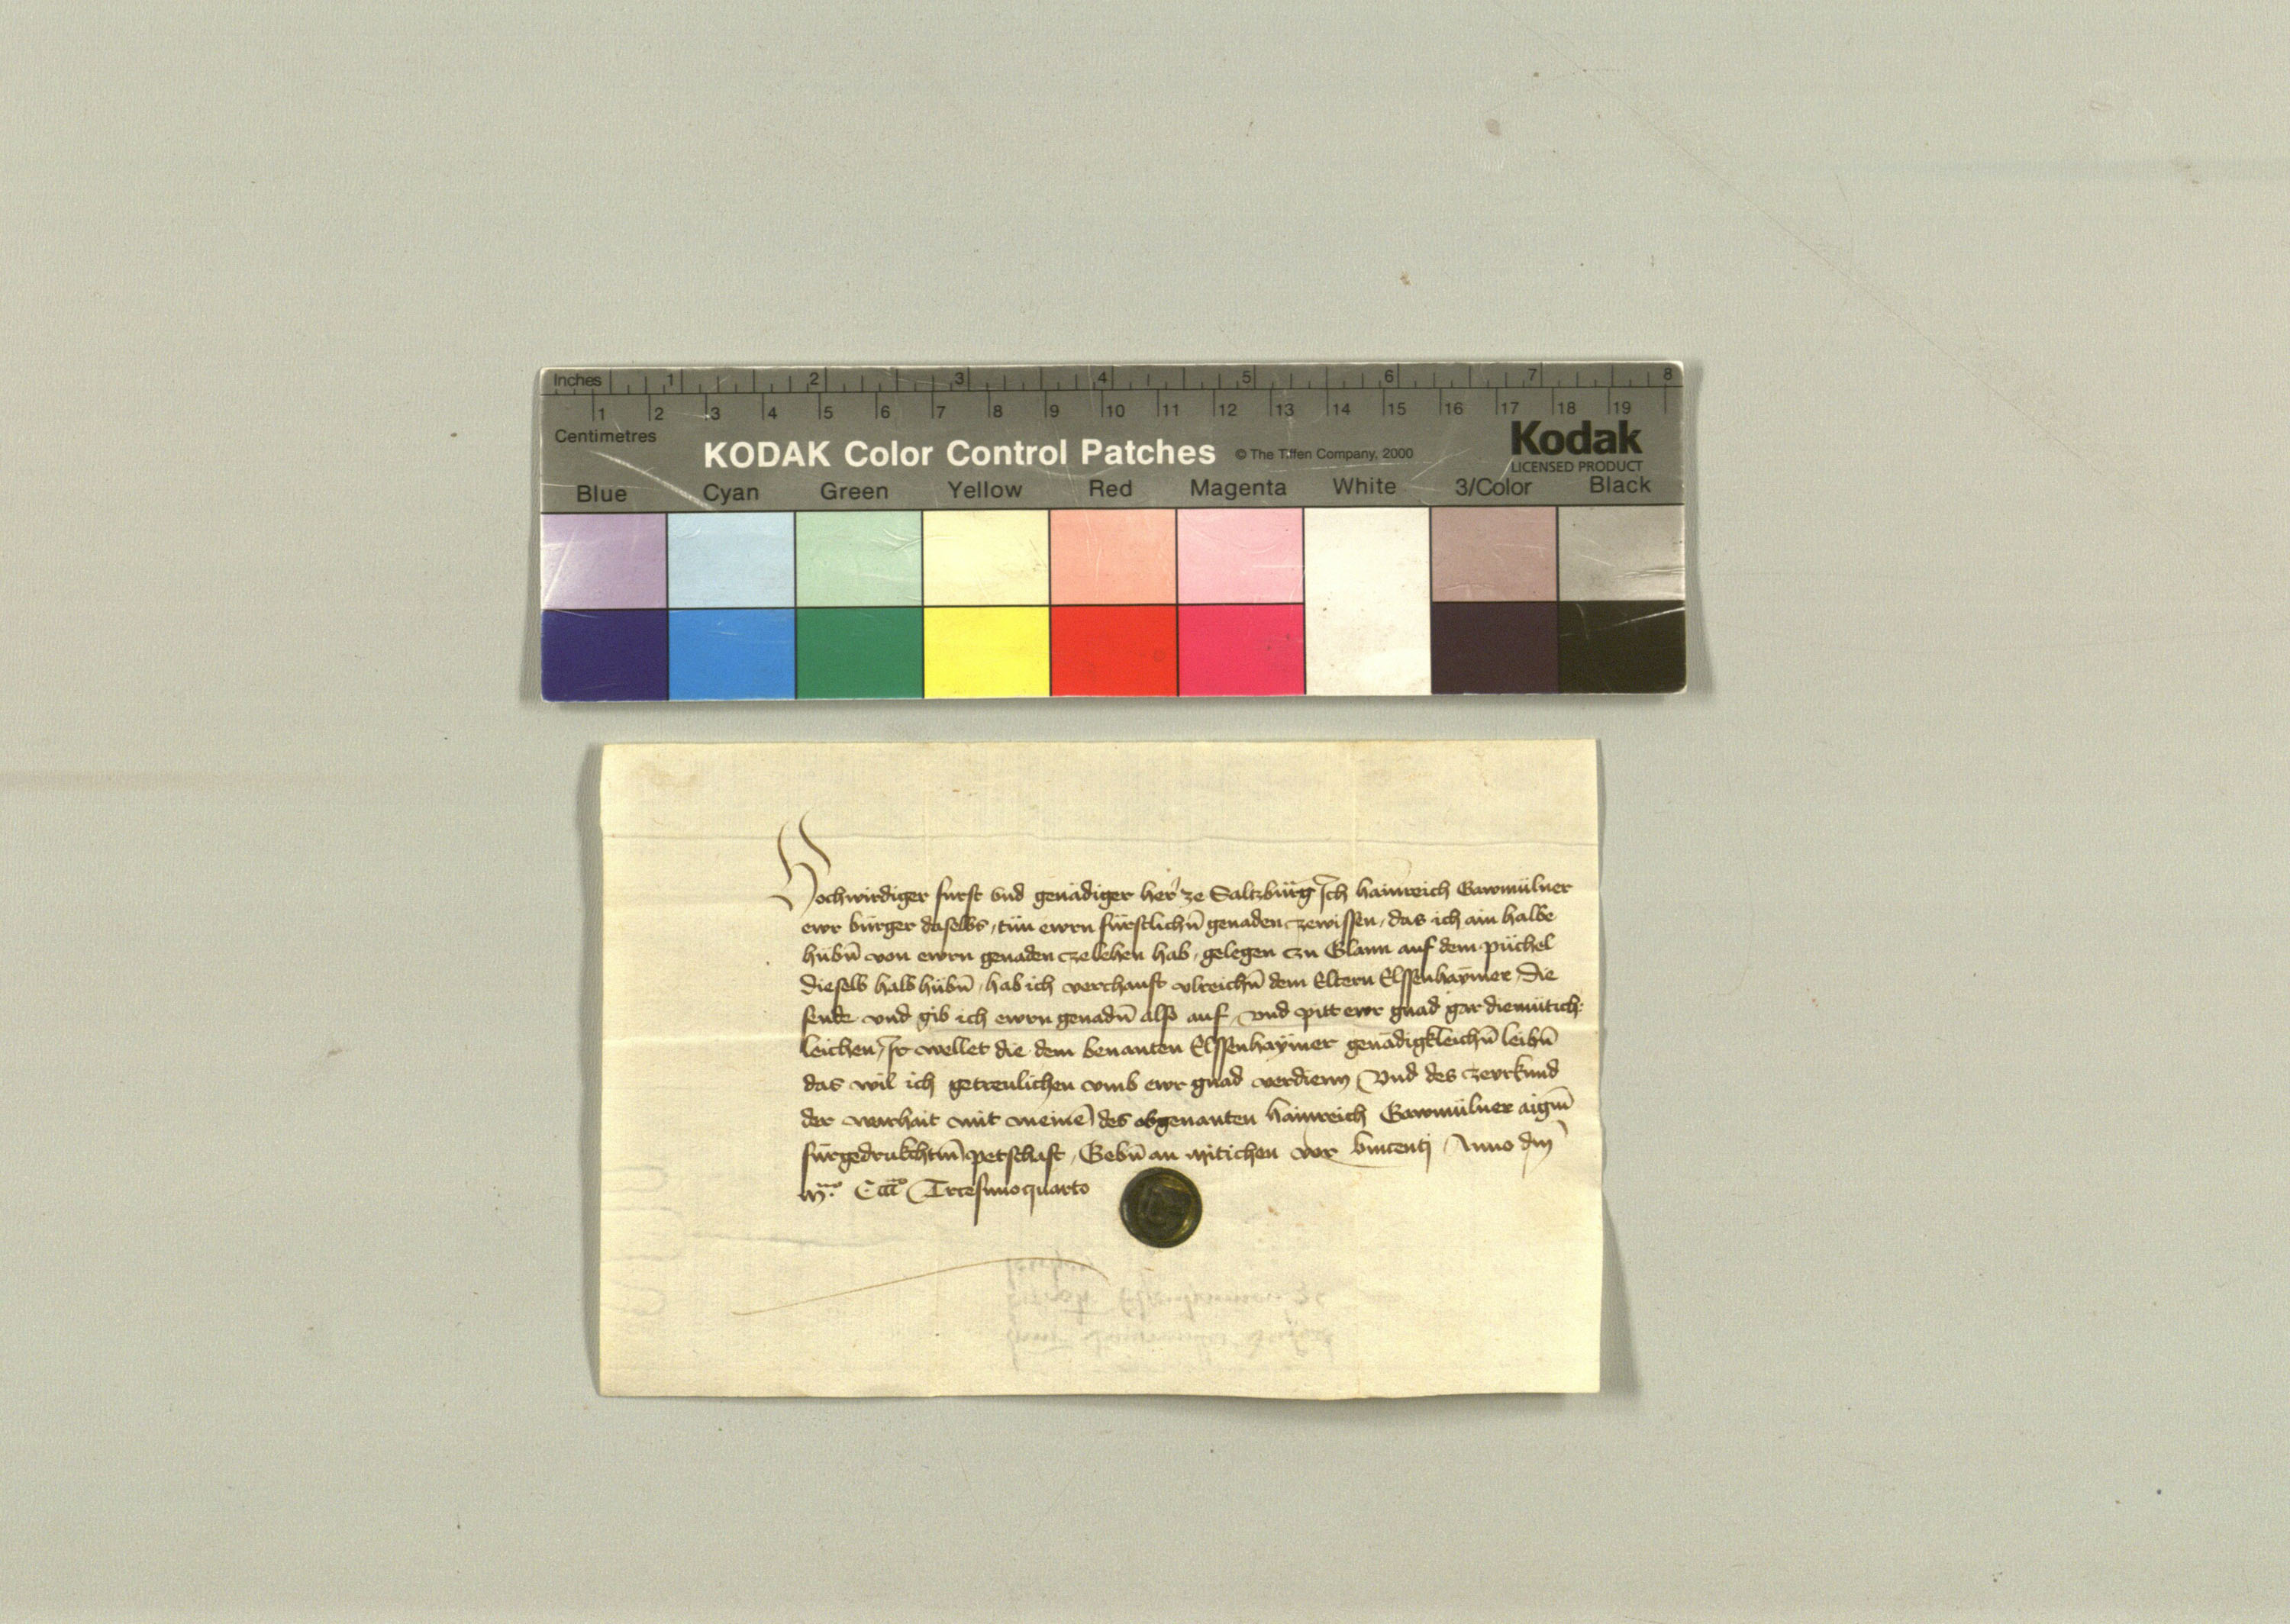 Inches 1 2 3 4 5 6 7 8
1 2 3 4 5 6 7 8 9 10 11 12 13 14 15 16 17 18 19
Centimetres
KODAK Color Control Patches © The Tiffen Company, 2000
Kodak
LICENSED PRODUCT
Blue Cyan Green Yellow Red Magenta White 3/Color Black
Hochwirdiger furst vnd genädiger her ze Saltzburg Ich hainreich Gawmülner
ewr burger daselbs, tün ewrn fürstlichn̄ genaden zewissen, das ich ain halbe
hübn̄ von ewrn genaden zelehen hab, gelegen zu Glann auf dem püchel
dieselb halb hübn̄, hab ich verchauft vlreichn̄ dem Eltern Elssenhaÿmer, Die
sende vnd gib ich ewrn genadn̄ also auf, vnd pitt ewr gnad gar diemütich
leichen, Ir wellet die dem benanten Elssenhaÿmer genädigkleichn̄ leihn̄
das wil ich getreulichen vmb ewr gnad verdienn Vnd des zevrkund
der warhait mit meinē des obgenanten hainreich Gawmülner aigm̄
fürgedrukchtm̄ petschaft, Gebn̄ an mitichen vor vincentj Anno dm̄
mo. CCCCo Trcesimoquarto